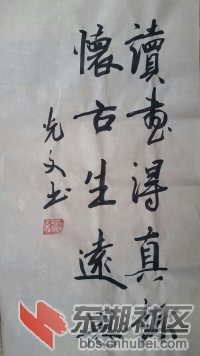 讀畫得真
懷古生遠
光文书
东湖社区
bbs.cnhubei.com